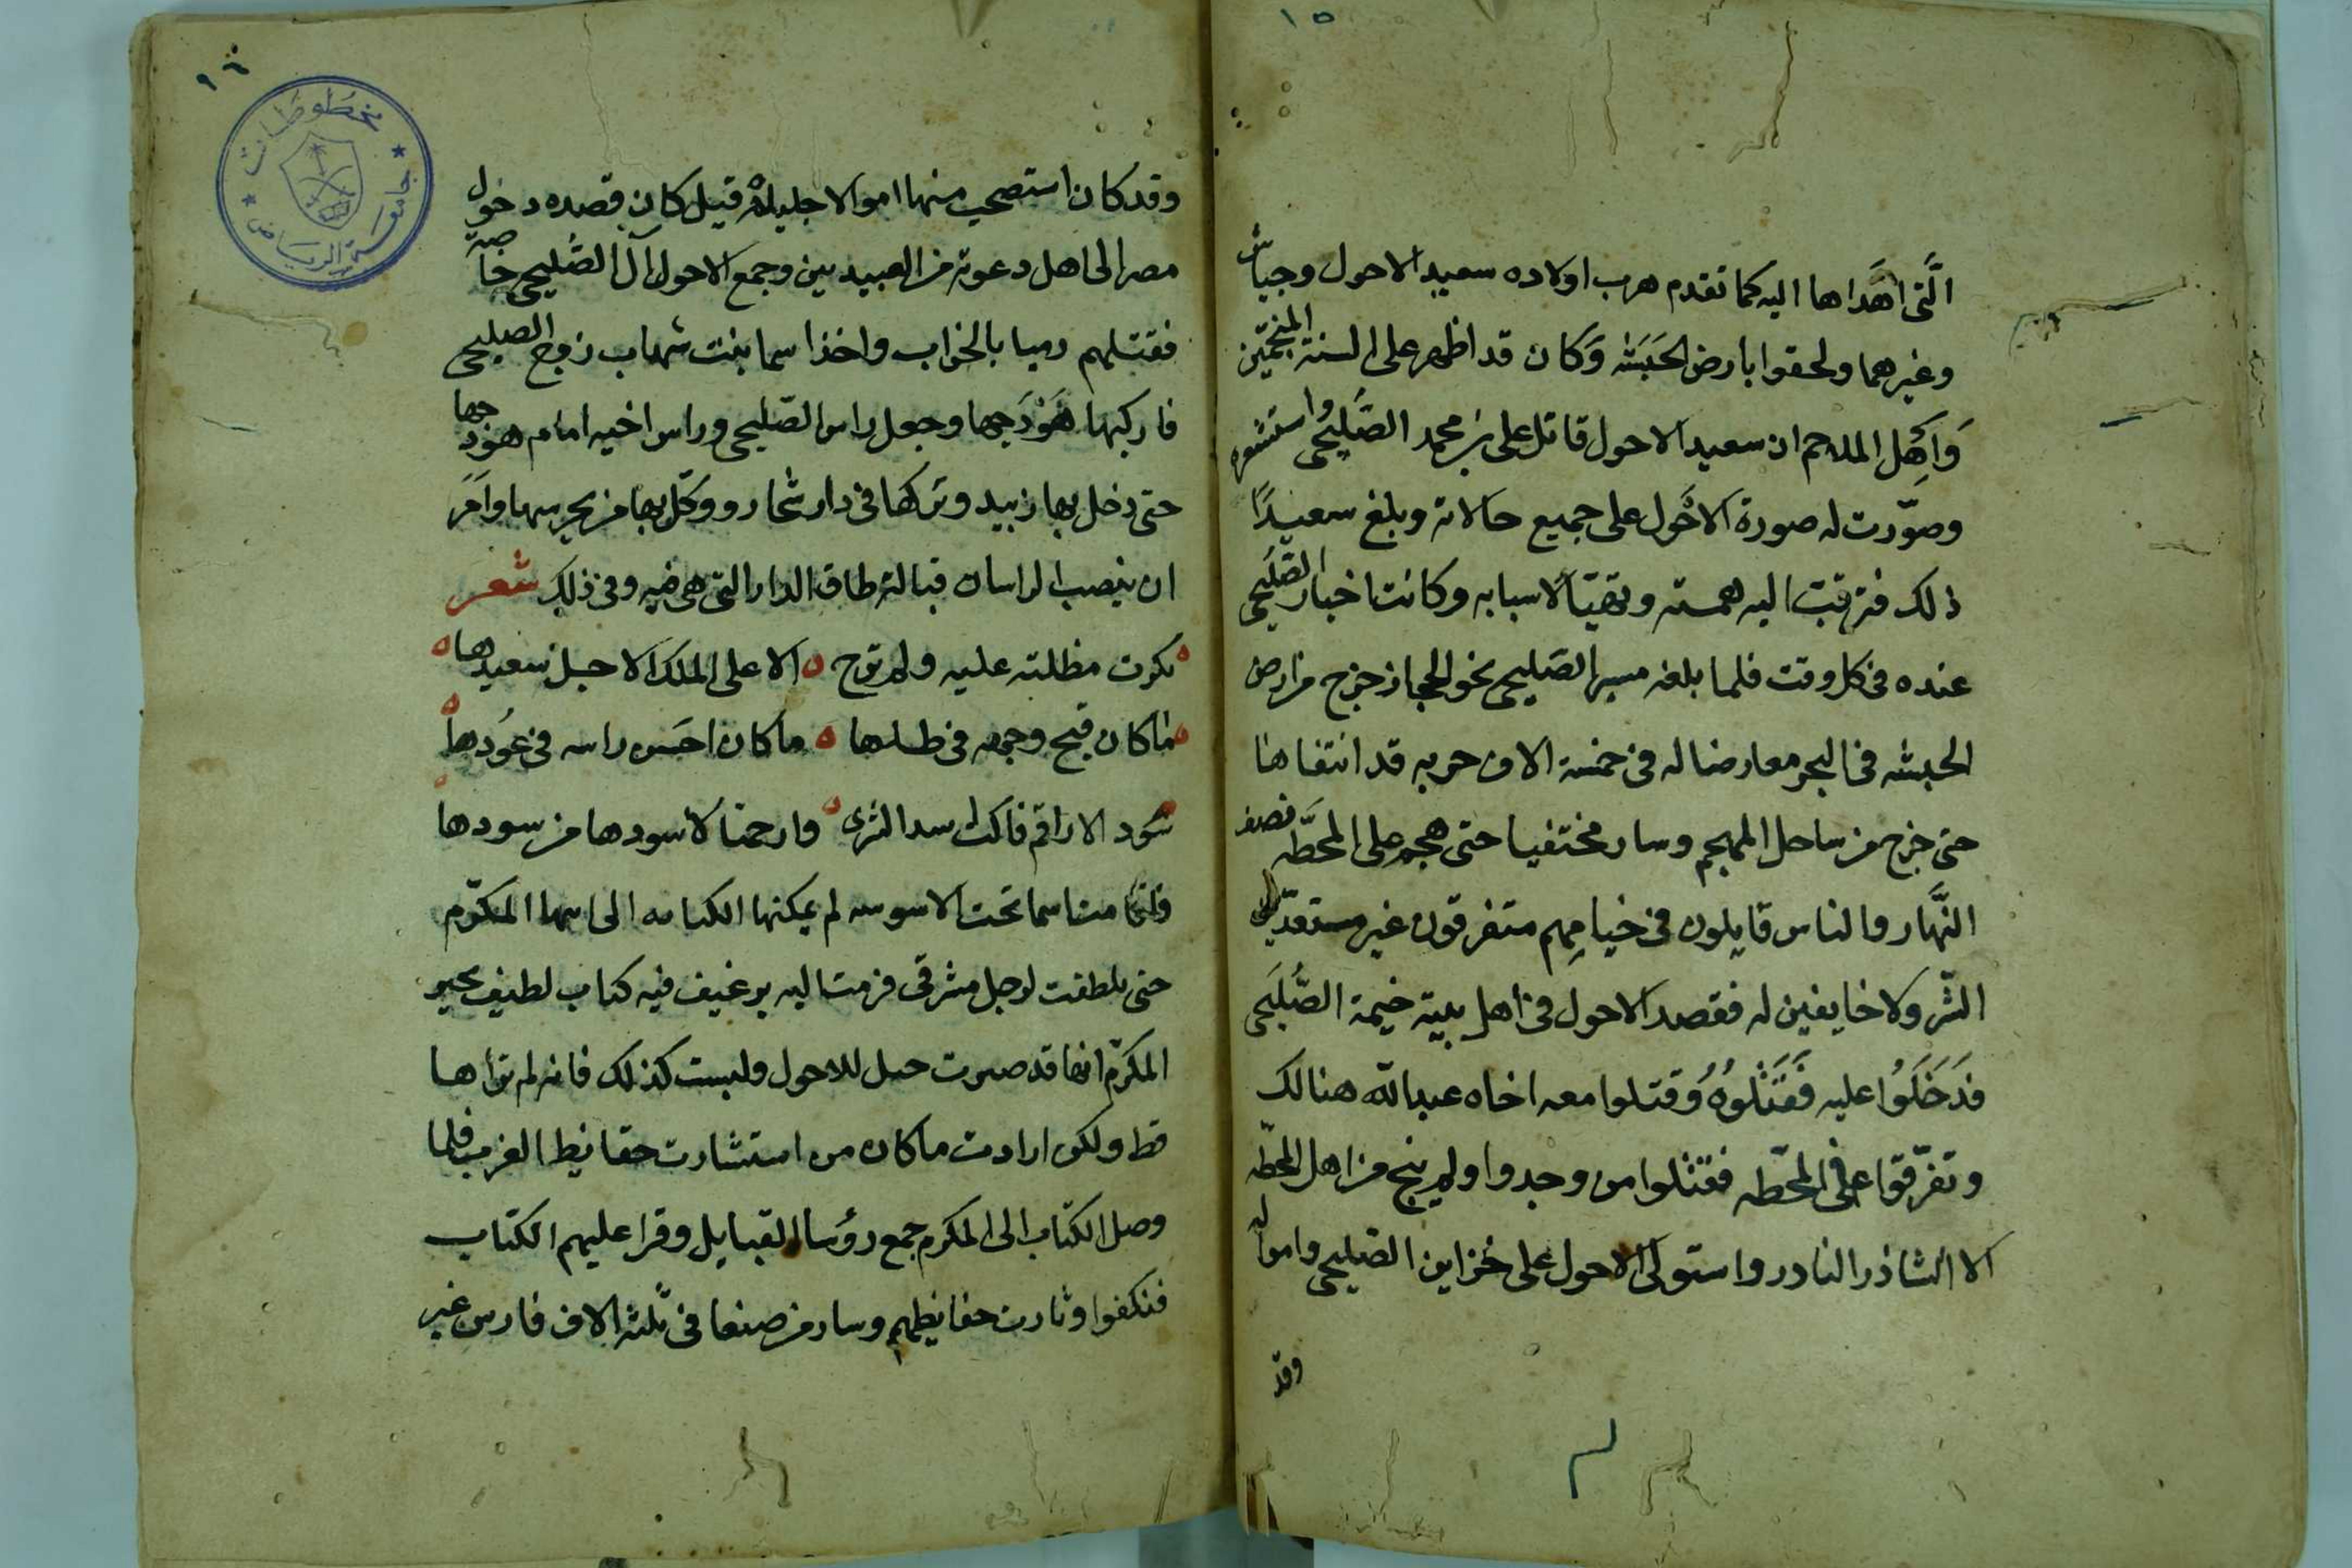 ١٥
الَّتى اهَداها اليه كما تقدم هرب اولاده سعيد الاحول وجياش
وغيرهما ولحقوا بارض الحَبَشه وَكان قد اظهر على السنة المنجّمين
وَاهل الملاحم ان سعيد الاحول قاتل على بن محمد الصَّليحى واستشعره
وصوّرت له صورة الاحَول على جميع حالاته وبلغ سعيدًا
ذلك فترقت اليه همته وتهيّا لاسبابه وكانت اخبار الصّليحى
عنده فى كل وقت فلما بلغه مسير الصّليحى نحو الحجاز خرج من ارض
الحبشه فى البحر معارضا له فى خمسة الاف حربه قد انتقاها
حتى خرج من ساحل المهجم وسار مختفيا حتى هجم على المحطّه نصف
النَّهار والناس قايلون فى خيامِهم متفرقون غير مستعدّين
الشّر ولا خايفين له فقصد الاحول فى اهل بيته خيمة الصُّلَيحى
فدَخَلَوُا عليه فَقَتَلوُهُ وُقتلوا معه اخاه عبد الله هنالك
وتفرّقوا على فى المحَطّه فقتلوا من وجدوا ولم ينج من اهل المحطّه
الا الشاذر النادر واستولى الاحول على خزاين الصّليحى وامواله
وقد
١٦
مخطوطات
جامعة الرياض
وقد كان استصحب منها اموالا جليلة قيل كان قصده دخول
مصر الى اهل دعوته من العبيديين وجمع الاحول آل الصُّليحى خاصة
فقتلهم رميا بالخراب واخذ اسما بنت شهاب زوج الصليحى
فاركبها هَوْدَجها وجعل راس الصّليحى وراس اخيه امام هودجها
حتى دخل بها زبيد وتركها فى دار شحار ووكّل بها من يحرسها وامَرَ
ان ينصب الراسان قبالة طاق الدار التى هى فيه وفى ذلك شعر
بكرت مظلته عليه ولم ترح الا على الملك الاجل سعيدها
ما كان قبح وجهه فى ظلها ما كان احَسن راسه فى عُودها
سُود الاراقم قاتلت اسد الثرى وارحمتا لاسودها من سودها
فلما اسما تحت الاسر لم يمكنها الكتابه الى ابنها المكرّم
حتى تلطفت لرجل مشرقى فرمت اليه برغيف فيه كتاب لطيف يخبر
المكرّم انها قد صرت حبل للاحول وليست كذلك فانه لم يراها
قط ولكن ارادت ما كان من استشارت حفايظ العرب فلما
وصل الكتاب الى المكرم جمع رؤسا القبايل وقرا عليهم الكتاب
فنكفوا وثارت حفايظهم وسار من صنعا فى ثلثة الاف فارس غير